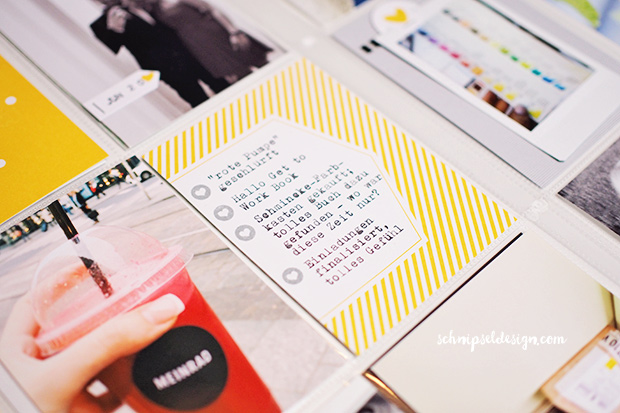 JUN 2.0
"rote Pumpe"
geschlürft
Hallo Get to
Work Book
Schmincke-Farb-
kasten gekauft,
tolles Buch dazu
gefunden - wo war
diese Zeit nur?
Einladungen
finalisiert,
tolles Gefühl
MEINRAD
schnipseldesign.com